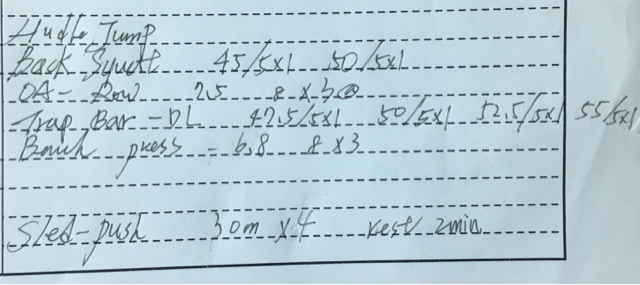 Hudle Jump
Back Squtt 45/5x1 50/5x1
OA- Row 25 8 x 3
Trap Bar - DL 47.5/5x1 50/5x1 52.5/5x1 55/5x1
press - 6.8 8 x 3
Sled-push 30m x 4 rest/ 2min